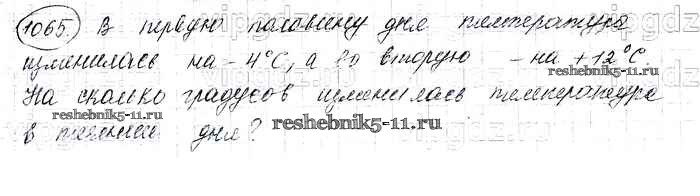 1065. В первую половину дня температура
изменилась на -4°С, а во вторую - на +12°С.
На сколько градусов изменилась температура
в течении дня?
reshebnik5-11.ru
reshebnik5-11.ru